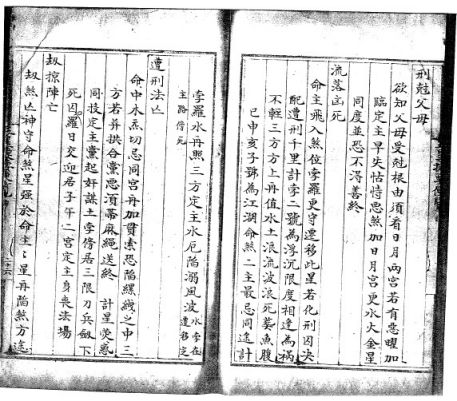 刑尅父母
欲知父母受尅根由須看日月兩宮若有惡曜加
臨定主早失怙恃惡煞加日月宮更水火金星
同度並惡不得善終
流落凶死
命主飛入煞位孛羅更守遷移此星若化刑囚决
配遭刑千里計孛二號為浮沉限度相逢為禍
不輕三方方上再值水土浪流波浪死葬魚腹
巳申亥子號為江湖命煞二主最忌同逢計
孛羅水再照三方定主水厄陷溺風波水孛在遷移定
主路傍死
遭刑法亡
命中水無切忌同宮再加貫索惡陷縲絏之中三
方若并拱合黨惡須蒂麻繩送終 計星熒惑
同技定主黨起奸謀土孛倚居三限刀兵劔下
死囚羅日交迎居子午二宮定主身喪法場
刼掠陣亡
刼煞亡神守命煞星强於命主主星再陷煞方逢